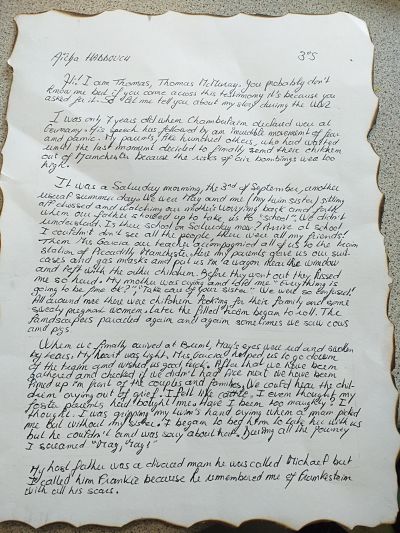 HADDOUCH 3°S
Hi! I am Thomas, Thomas McMurray. You probably don't
know me but if you come across this testimony it's because you
asked for it. So let me tell you about my story during the WW2
I was only 7 years old when Chamberlain declared war at
Germany. His speech has followed by an incredible movement of fear
and panic. My parents, like hundred others, who had waited
until the last moment decided to finally send their children
out of Manchester because the risks of air bombings were too
high.
It was a Saturday mourning, the 3rd of September, another
usual summer days. We were May and me (my twin sister) sitting
all dressed and watching our mother's worrying back and forth
when our father showed up to take us to "school". We didn't
understand. Is there school on Saturday mor? Arrived at school
I couldn't see all the people, there were all my friends!
Then Ms Garcia our teacher accompagnied all of us to the train
station of Piccadilly Manchester. Here my parents gave us our suit
cases and gas masks and put us in a wagon near the window
and left with the other children. Before they went out they kissed
me so hard. My mother was crying and told me "Everything is
going to be fine", "Take care of your sister". We were so
All around me there were children looking for their family and some
sweaty pregnant women. Later the filled train began to roll. The
landscapes paraded again and again sometimes we saw cows
and pigs.
When we finally arrived at Brent, May's eyes were red and swollen
by tears. My heart was tight. Mrs Garcia helped us to go down
of the train and wished us good luck. After that we have been
gathered and checked if we didn't had lice next we have been
lined up in front of the couples and families. We could hear the chil-
dren crying out of grief. I felt like cattle. I even thought my
foster parents had bought me. Have I been too naughty? I
thought. I was gripping my twin's hand crying when a man picked
me but without my sister. I began to beg him to take her with us
but he couldn't and was sorry about that. During all the journey
I screamed "May, May!"
My host father was a divorced man he was called Michael but
I called him Frankie because he remembered me of Frankestein
with all his scars.